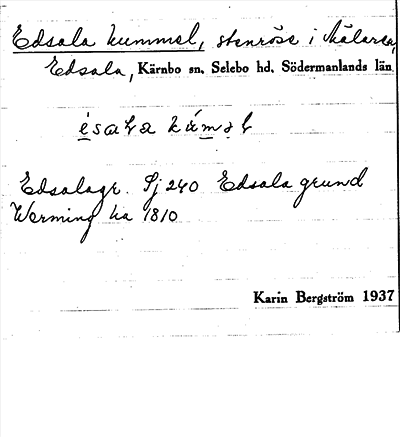 Edsala kummel, stenröse i Mälaren,
Edsala, Kärnbo sn, Selebo hd, Södermanlands län
Edsalagr. Sj 240 Edsala grund
Werming ka 1810
Karin Bergström 1937